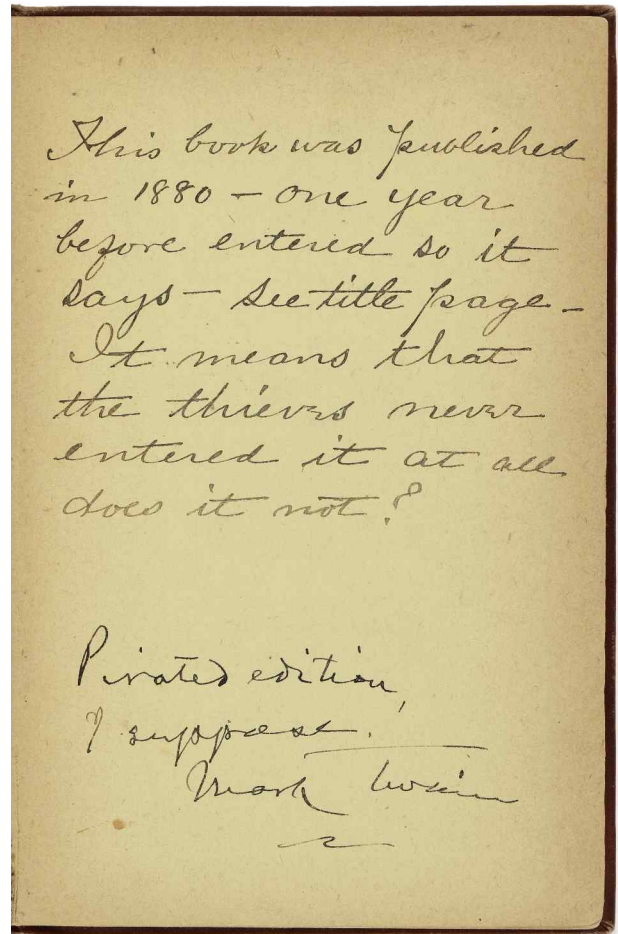 This book was published
in 1880 — one year
before entered so it
says — see title page —
It means that
the thieves never
entered it at all
does it not?
Pirated edition,
I suppose.
Mark Twain